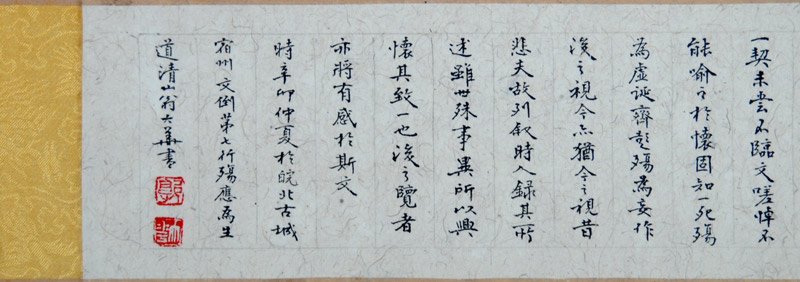 一契未尝不臨文嗟悼不
能喻之於懷固知一死殤
為虛誕齊彭殤為妄作
後之視今亦猶今之視昔
悲夫故列叙時人録其所
述雖世殊事異所以興
懷其致一也後之覽者
亦將有感於斯文
時辛卯仲夏於皖北古城
宿州文倒第七行殤應為生
道清山翁大華書